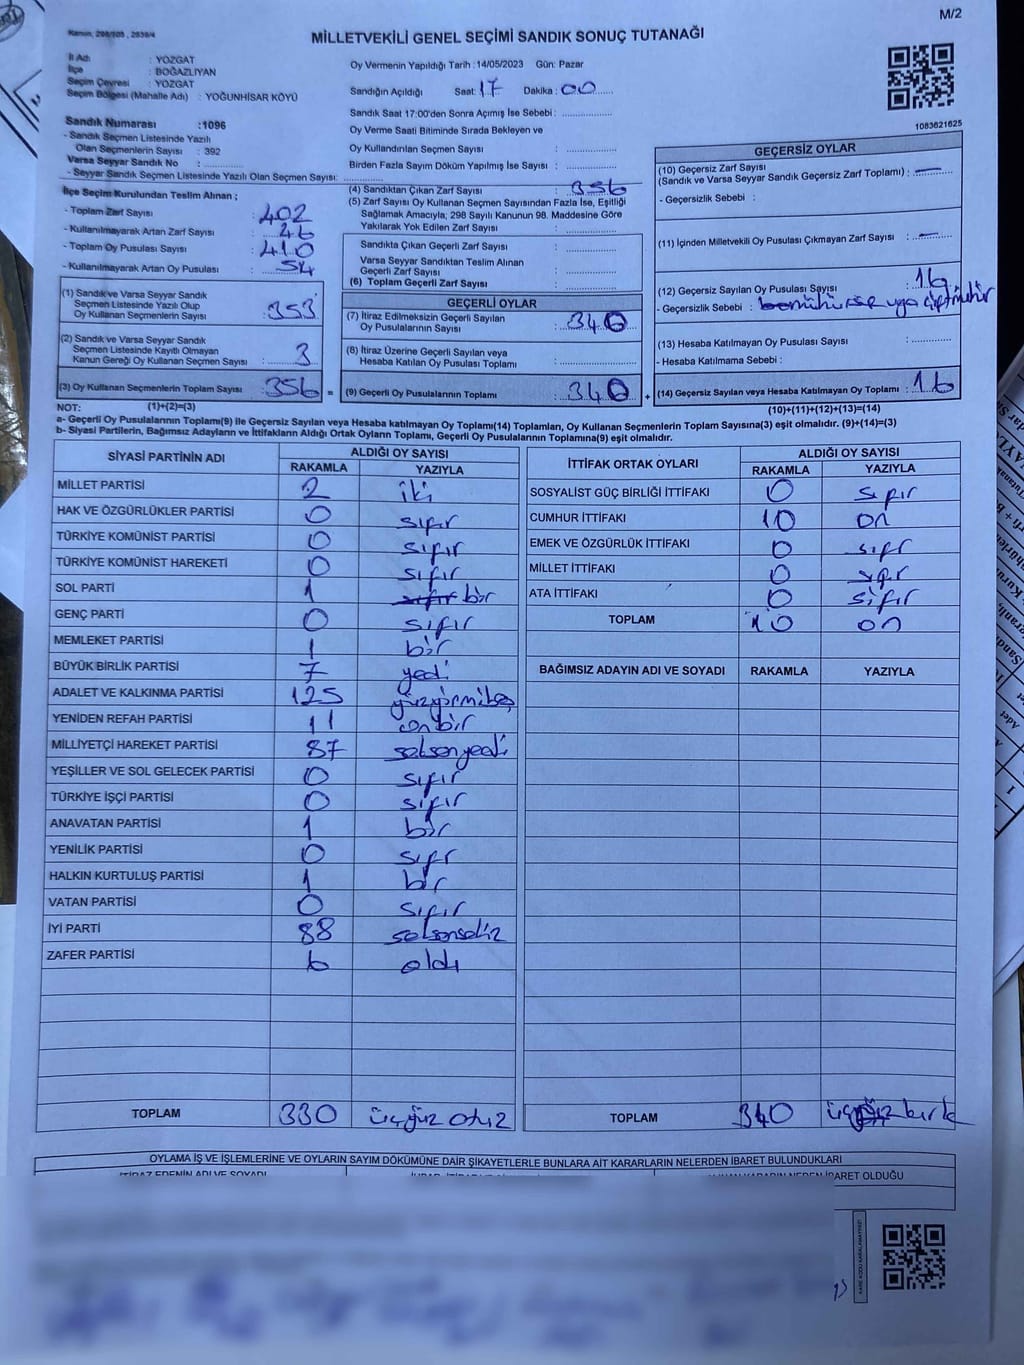 M/2
Kanun, 298/105, 2839/4
MİLLETVEKİLİ GENEL SEÇİMİ SANDIK SONUÇ TUTANAĞI
İl Adı : YOZGAT
İlçe : BOĞAZLIYAN
Seçim Çevresi : YOZGAT
Seçim Bölgesi (Mahalle Adı) : YOĞUNHİSAR KÖYÜ
Oy Vermenin Yapıldığı Tarih :14/05/2023 Gün: Pazar
Sandığın Açıldığı Saat: 17 Dakika: 00
Sandık Saat 17:00'den Sonra Açılmış İse Sebebi :
Oy Verme Saati Bitiminde Sırada Bekleyen ve
Oy Kullandırılan Seçmen Sayısı :
Birden Fazla Sayım Döküm Yapılmış İse Sayısı :
1083621625
Sandık Numarası :1096
- Sandık Seçmen Listesinde Yazılı
Olan Seçmenlerin Sayısı : 392
Varsa Seyyar Sandık No :
- Seyyar Sandık Seçmen Listesinde Yazılı Olan Seçmen Sayısı:
İlçe Seçim Kurulundan Teslim Alınan ;
- Toplam Zarf Sayısı : 402
- Kullanılmayarak Artan Zarf Sayısı : 46
- Toplam Oy Pusulası Sayısı : 410
- Kullanılmayarak Artan Oy Pusulası : 54
(1) Sandık ve Varsa Seyyar Sandık
Seçmen Listesinde Yazılı Olup
Oy Kullanan Seçmenlerin Sayısı : 353
(2) Sandık ve Varsa Seyyar Sandık
Seçmen Listesinde Kayıtlı Olmayan
Kanun Gereği Oy Kullanan Seçmen Sayısı : 3
(3) Oy Kullanan Seçmenlerin Toplam Sayısı : 356 =
(1)+(2)=(3)
(4) Sandıktan Çıkan Zarf Sayısı : 356
(5) Zarf Sayısı Oy Kullanan Seçmen Sayısından Fazla İse, Eşitliği
Sağlamak Amacıyla; 298 Sayılı Kanunun 98. Maddesine Göre
Yakılarak Yok Edilen Zarf Sayısı :
Sandıkta Çıkan Geçerli Zarf Sayısı :
Varsa Seyyar Sandıktan Teslim Alınan
Geçerli Zarf Sayısı :
(6) Toplam Geçerli Zarf Sayısı :
GEÇERLİ OYLAR
(7) İtiraz Edilmeksizin Geçerli Sayılan
Oy Pusulalarının Sayısı : 340
(8) İtiraz Üzerine Geçerli Sayılan veya
Hesaba Katılan Oy Pusulası Toplamı :
(9) Geçerli Oy Pusulalarının Toplamı : 340 +
GEÇERSİZ OYLAR
(10) Geçersiz Zarf Sayısı
(Sandık ve Varsa Seyyar Sandık Geçersiz Zarf Toplamı) : —
- Geçersizlik Sebebi :
(11) İçinden Milletvekili Oy Pusulası Çıkmayan Zarf Sayısı : —
(12) Geçersiz Sayılan Oy Pusulası Sayısı : 16
- Geçersizlik Sebebi :
(13) Hesaba Katılmayan Oy Pusulası Sayısı :
- Hesaba Katılmama Sebebi :
(14) Geçersiz Sayılan veya Hesaba Katılmayan Oy Toplamı : 16
(10)+(11)+(12)+(13)=(14)
NOT:
a- Geçerli Oy Pusulalarının Toplamı(9) ile Geçersiz Sayılan veya Hesaba Katılmayan Oy Toplamı(14) Toplamları, Oy Kullanan Seçmenlerin Toplam Sayısına(3) eşit olmalıdır. (9)+(14)=(3)
b- Siyasi Partilerin, Bağımsız Adayların ve İttifakların Aldığı Ortak Oyların Toplamı, Geçerli Oy Pusulalarının Toplamına(9) eşit olmalıdır.
SİYASİ PARTİNİN ADI ALDIĞI OY SAYISI
RAKAMLA YAZIYLA
MİLLET PARTİSİ 2 iki
HAK VE ÖZGÜRLÜKLER PARTİSİ 0 sıfır
TÜRKİYE KOMÜNİST PARTİSİ 0 sıfır
TÜRKİYE KOMÜNİST HAREKETİ 0 sıfır
SOL PARTİ 1 bir
GENÇ PARTİ 0 sıfır
MEMLEKET PARTİSİ 1 bir
BÜYÜK BİRLİK PARTİSİ 7 yedi
ADALET VE KALKINMA PARTİSİ 125 yüzyirmibeş
YENİDEN REFAH PARTİSİ 11 onbir
MİLLİYETÇİ HAREKET PARTİSİ 87 seksenyedi
YEŞİLLER VE SOL GELECEK PARTİSİ 0 sıfır
TÜRKİYE İŞÇİ PARTİSİ 0 sıfır
ANAVATAN PARTİSİ 1 bir
YENİLİK PARTİSİ 0 sıfr
HALKIN KURTULUŞ PARTİSİ 1 bir
VATAN PARTİSİ 0 sıfır
İYİ PARTİ 88 seksensekiz
ZAFER PARTİSİ 6 altı
TOPLAM 330 üçyüz otuz
İTTİFAK ORTAK OYLARI ALDIĞI OY SAYISI
RAKAMLA YAZIYLA
SOSYALİST GÜÇ BİRLİĞİ İTTİFAKI 0 sıfır
CUMHUR İTTİFAKI 10 on
EMEK VE ÖZGÜRLÜK İTTİFAKI 0 sıfr
MİLLET İTTİFAKI 0 sıfır
ATA İTTİFAKI 0 sıfır
TOPLAM 10 on
BAĞIMSIZ ADAYIN ADI VE SOYADI RAKAMLA YAZIYLA
TOPLAM 340 üçyüz kırk
OYLAMA İŞ VE İŞLEMLERİNE VE OYLARIN SAYIM DÖKÜMÜNE DAİR ŞİKAYETLERLE BUNLARA AİT KARARLARIN NELERDEN İBARET BULUNDUKLARI
İTİRAZ EDENİN ADI VE SOYADI
KARARIN NEDEN İBARET OLDUĞU